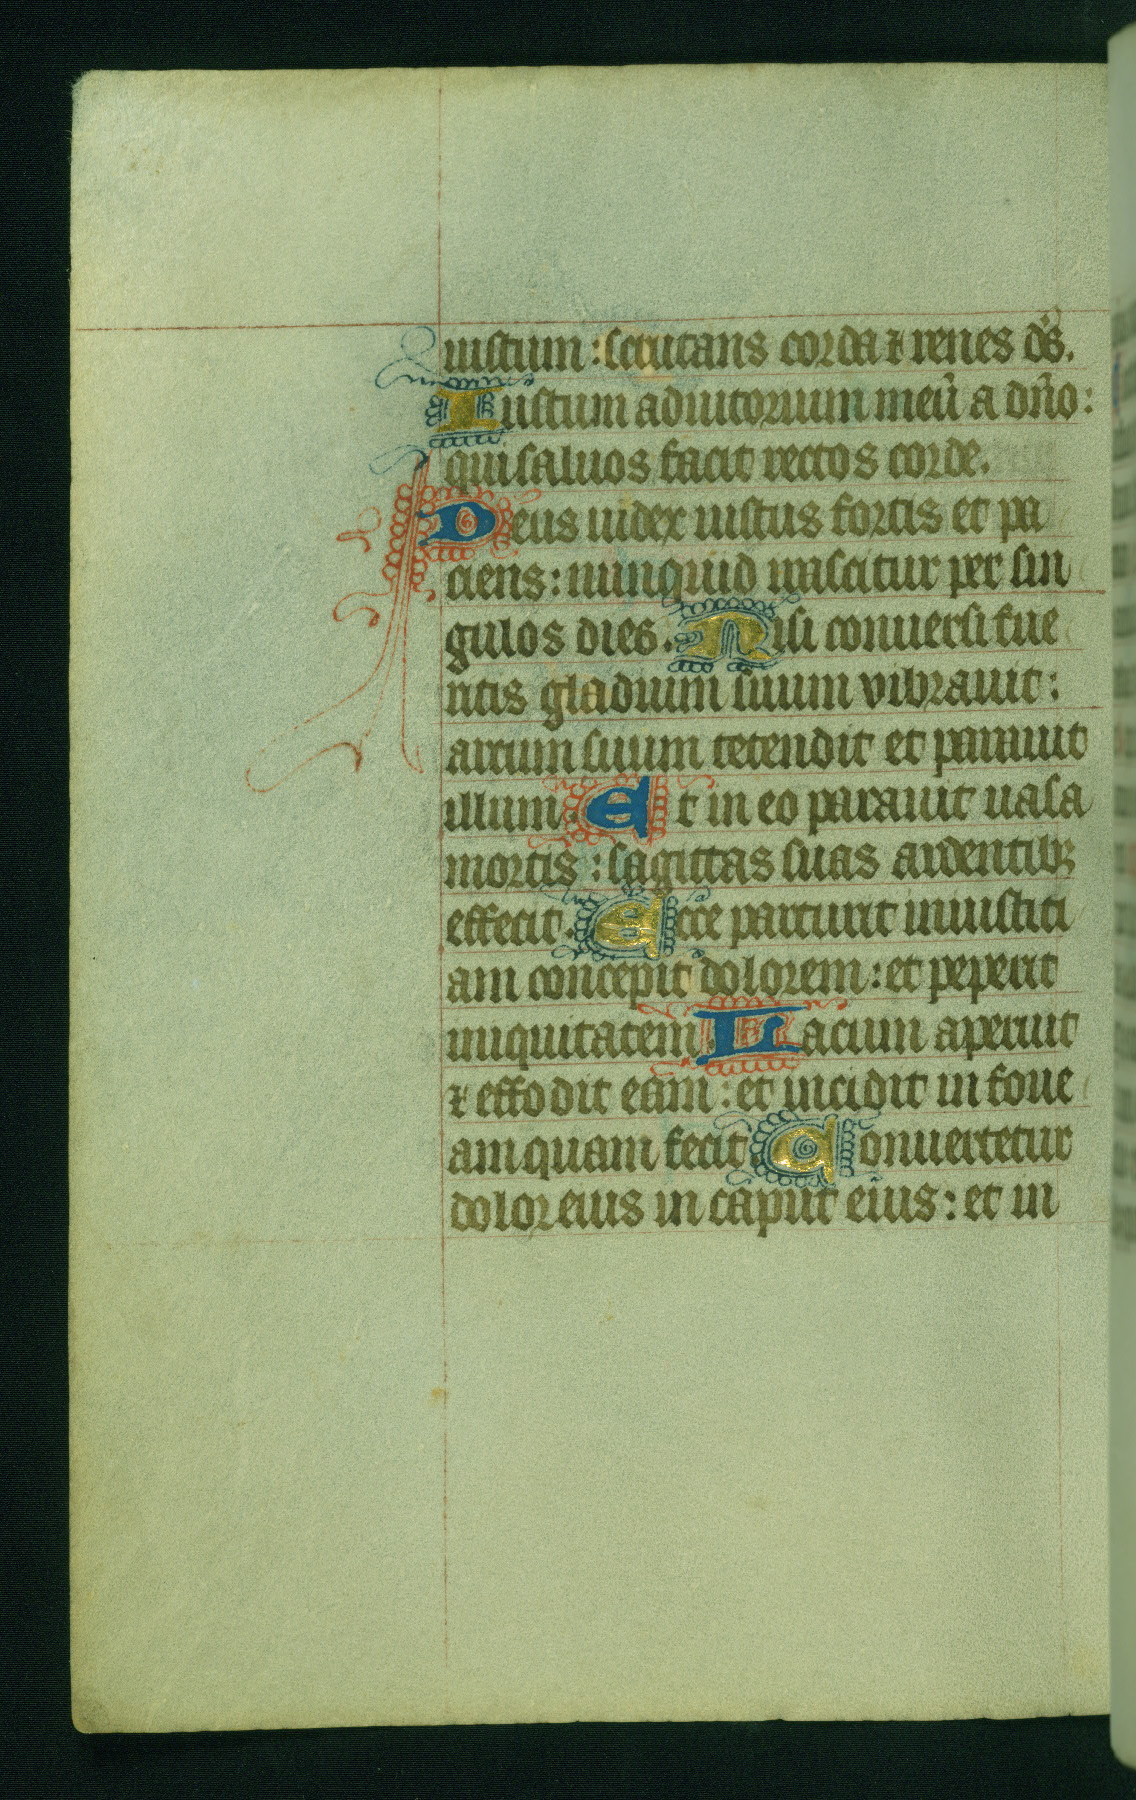 iustum : scrutans corda ⁊ renes d̄s.
Iustum adiutorium meū a dn̄o :
qui saluos facit rectos corde.
Deus iudex iustus fortis et pa
ciens : nunquid irascitur per sin
gulos dies. Nisi conuersi fue
ritis gladium suum vibrauit :
arcum suum tetendit et parauit
illum. Et in eo parauit uasa
mortis : sagittas suas ardentibꝫ
effecit. Ecce parturit iniusticiam
am concepit dolorem : et peperit
iniquitatem. Lacum aperuit
⁊ effodit eam : et incidit in foue
am quam fecit. Conuertetur
dolor eius in caput eius : et in